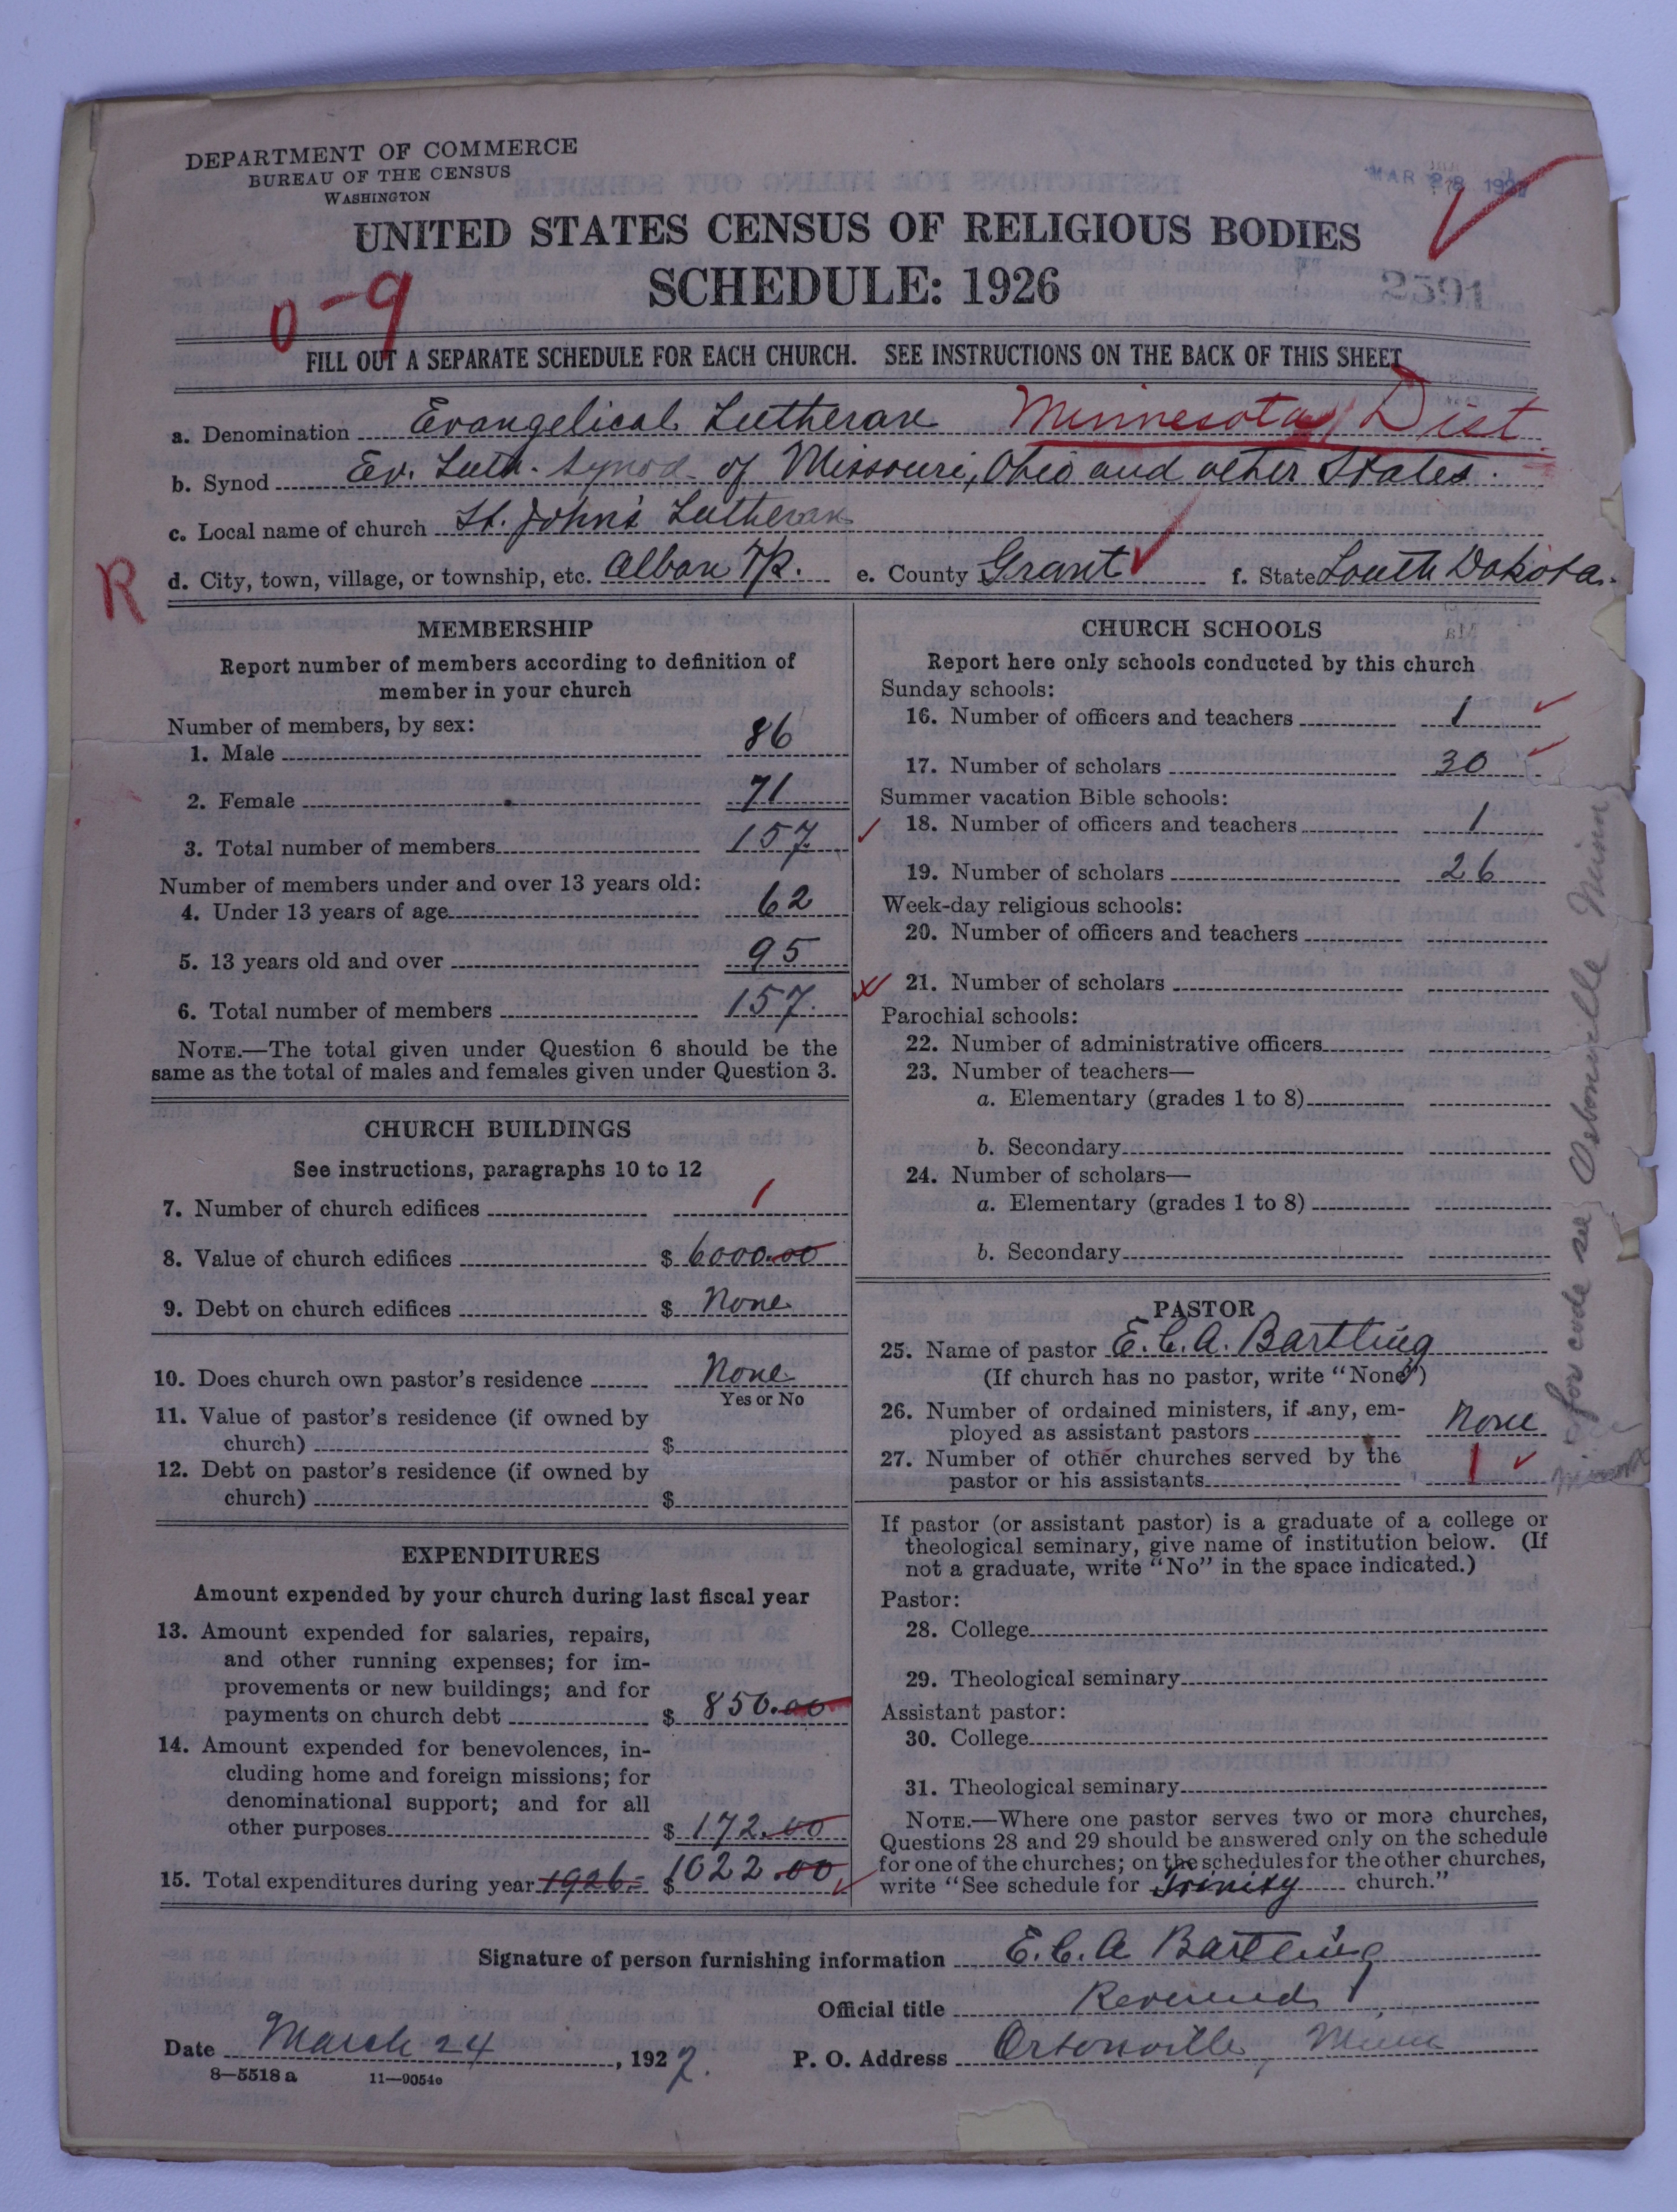 DEPARTMENT OF COMMERCE
BUREAU OF THE CENSUS
WASHINGTON
MAR 28 1927
UNITED STATES CENSUS OF RELIGIOUS BODIES
SCHEDULE: 1926
2591
0-9
FILL OUT A SEPARATE SCHEDULE FOR EACH CHURCH. SEE INSTRUCTIONS ON THE BACK OF THIS SHEET
a. Denomination Evangelical Lutheran Minnesota Dist
b. Synod Ev. Luth. Synod of Missouri, Ohio and other States.
c. Local name of church St. John's Lutheran
R
d. City, town, village, or township, etc. Alban Tp. e. County Grant f. State South Dakota.
MEMBERSHIP
Report number of members according to definition of
member in your church
Number of members, by sex:
1. Male 86
2. Female 71
3. Total number of members 157.
Number of members under and over 13 years old:
4. Under 13 years of age 62
5. 13 years old and over 95
6. Total number of members 157.
NOTE.—The total given under Question 6 should be the
same as the total of males and females given under Question 3.
CHURCH BUILDINGS
See instructions, paragraphs 10 to 12
7. Number of church edifices 1
8. Value of church edifices $ 6000.00
9. Debt on church edifices $ None
10. Does church own pastor's residence None
Yes or No
11. Value of pastor's residence (if owned by
church) $
12. Debt on pastor's residence (if owned by
church) $
EXPENDITURES
Amount expended by your church during last fiscal year
13. Amount expended for salaries, repairs,
and other running expenses; for im-
provements or new buildings; and for
payments on church debt $ 850.00
14. Amount expended for benevolences, in-
cluding home and foreign missions; for
denominational support; and for all
other purposes $ 172.00
15. Total expenditures during year 1926. $ 1022.00
CHURCH SCHOOLS
Report here only schools conducted by this church
Sunday schools:
16. Number of officers and teachers 1
17. Number of scholars 30
Summer vacation Bible schools:
18. Number of officers and teachers 1
19. Number of scholars 26
Week-day religious schools:
20. Number of officers and teachers
21. Number of scholars
Parochial schools:
22. Number of administrative officers
23. Number of teachers—
a. Elementary (grades 1 to 8)
b. Secondary
24. Number of scholars—
a. Elementary (grades 1 to 8)
b. Secondary
PASTOR
25. Name of pastor E. C. A. Bartling
(If church has no pastor, write "None")
26. Number of ordained ministers, if any, em-
ployed as assistant pastors None
27. Number of other churches served by the
pastor or his assistants 1
If pastor (or assistant pastor) is a graduate of a college or
theological seminary, give name of institution below. (If
not a graduate, write "No" in the space indicated.)
Pastor:
28. College
29. Theological seminary
Assistant pastor:
30. College
31. Theological seminary
NOTE.—Where one pastor serves two or more churches,
Questions 28 and 29 should be answered only on the schedule
for one of the churches; on the schedules for the other churches,
write "See schedule for Trinity church."
for code see Ortonville Minn
Signature of person furnishing information E. C. A Bartling
Official title Reverend
Date March 24, 1927. P. O. Address Ortonville, Minn
8—5518 a 11—9054c